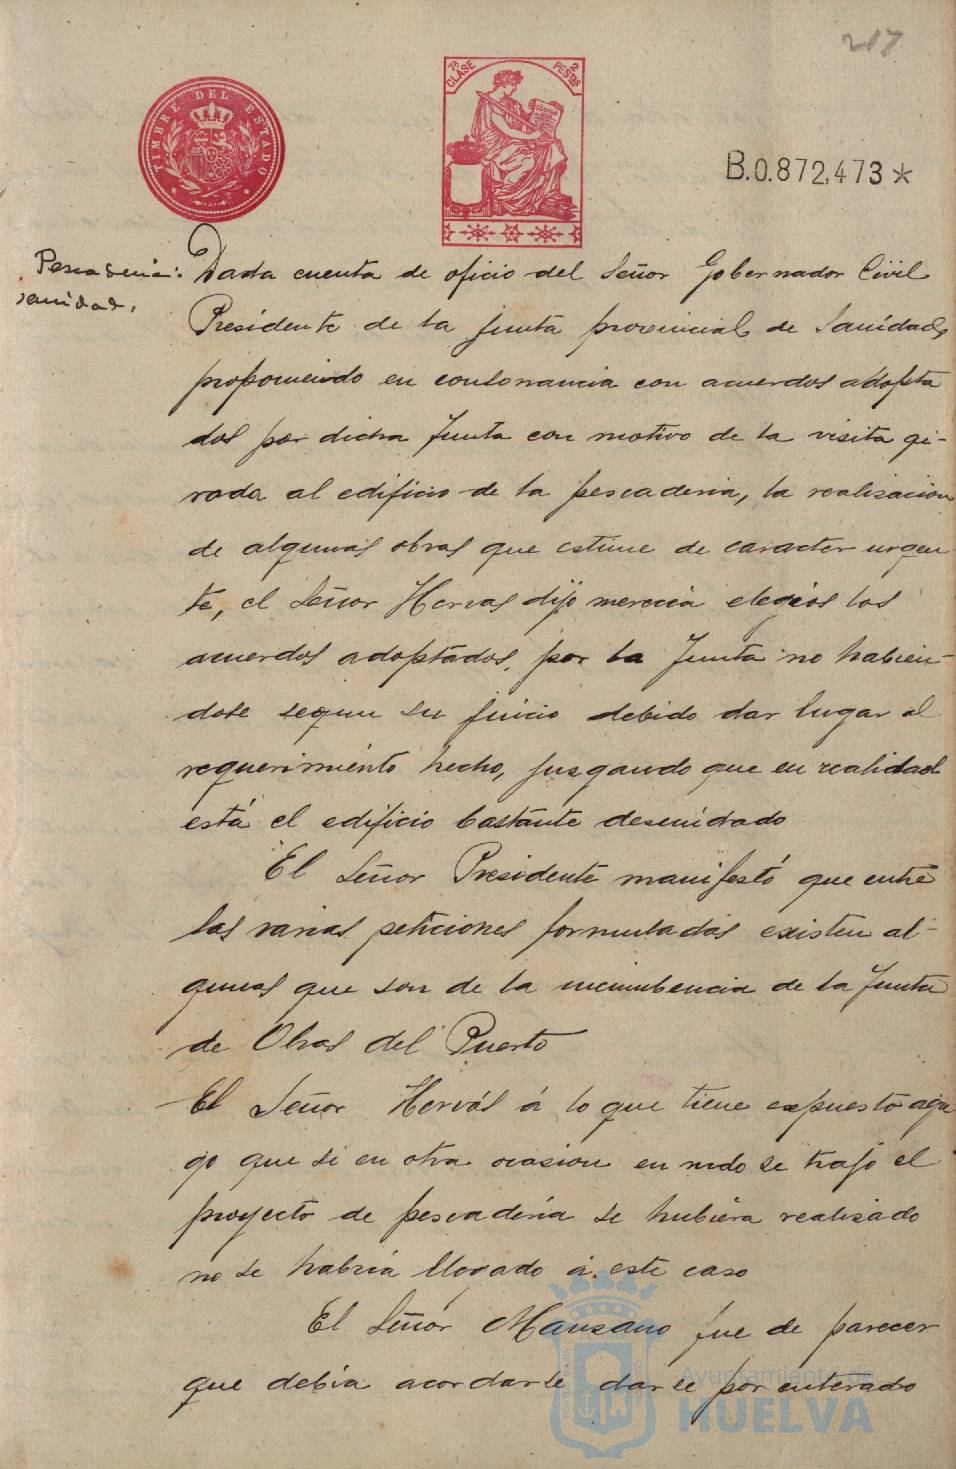 217
TIMBRE DEL ESTADO
7ª CLASE
2 PESTAS
B.0.872,473*
Pescaderia:
sanidad.
Dada cuenta de oficio del Señor Gobernador Civil
Presidente de la Junta provincial de Sanidad,
proponiendo en consonancia con acuerdos adopta
dos por dicha Junta con motivo de la visita gi-
rada al edificio de la pescaderia, la realisacion
de algunas obras que estime de caracter urgen
te, el Señor Hervas dijo merecia elogios los
acuerdos adoptados, por la Junta no habien-
dose segun su juicio debido dar lugar al
requerimiento hecho, jusgando que en realidad
está el edificio bastante descuidado
El Señor Presidente manifestó que entre
las varias peticiones formuladas existen al-
gunas que son de la incumbencia de la Junta
de Obras del Puerto
El Señor Hervás á lo que tiene expuesto agre
go que si en otra ocasion en que se trajo el
proyecto de pescadería se hubiera realisado
no se habría llegado á este caso
El Señor Mansano fue de parecer
que debia acordarse darse por enterado
Ayuntamiento de
HUELVA